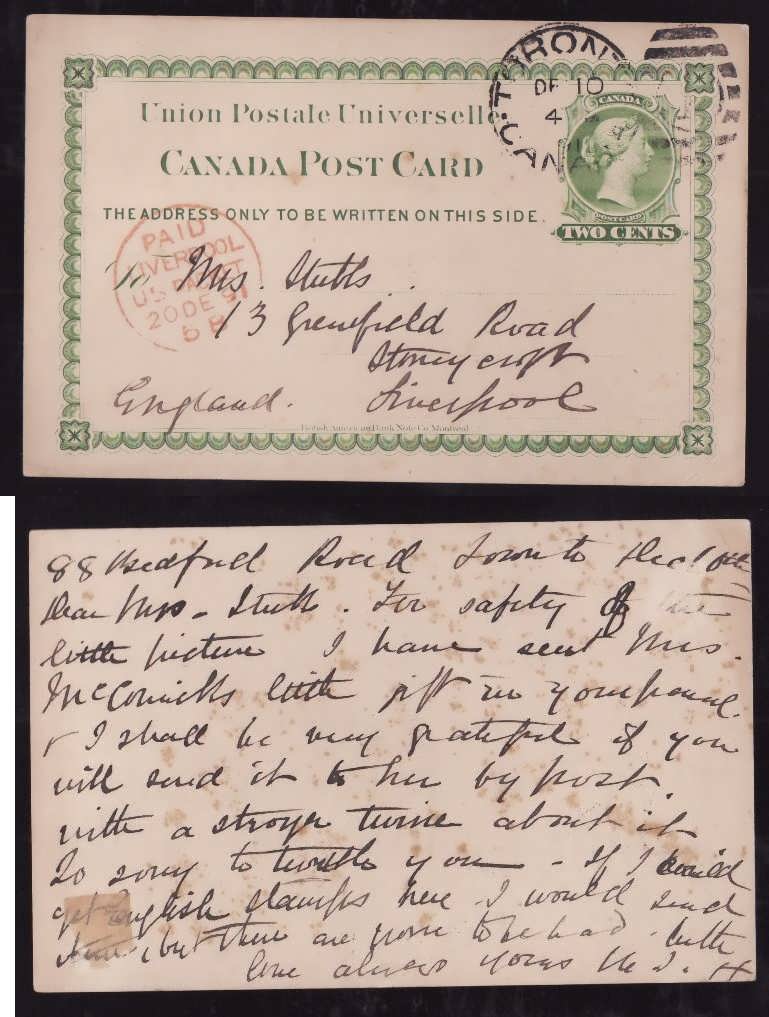 Union Postale Universelle
CANADA POST CARD
THE ADDRESS ONLY TO BE WRITTEN ON THIS SIDE.
TORONT
DE 10
4
CANADA
CANADA
POST CARD
TWO CENTS
PAID
LIVERPOOL
U.S. PACKET
20 DE 91
5 B
To Mrs. Stubbs.
13 Greenfield Road
Stoneycroft
England. Liverpool
British American Bank Note Co. Montreal
88 Bedford Road Toronto Dec 10th
Dear Mrs - . For safety of the
little picture I have sent Mrs.
little gift in your parcel.
& I shall be very grateful if you
will send it to her by post.
with a stronger twine about it
So sorry to trouble you - If I could
get English stamps here I would send
them, but there are none to be had. with
love always yours